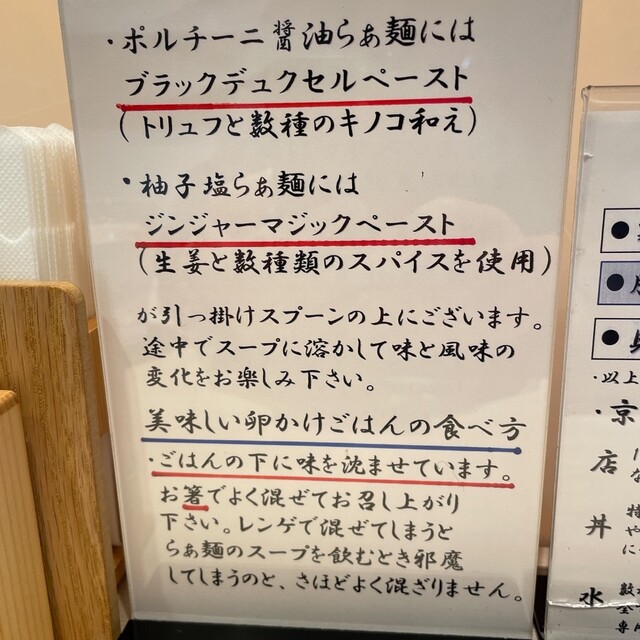 ・ポルチーニ醤油らぁ麺には
ブラックデュクセルペースト
(トリュフと数種のキノコ和え)
・柚子塩らぁ麺には
ジンジャーマジックペースト
(生姜と数種類のスパイスを使用)
が引っ掛けスプーンの上にございます。
途中でスープに溶かして味と風味の
変化をお楽しみ下さい。
美味しい卵かけごはんの食べ方
・ごはんの下に味を沈ませています。
お箸でよく混ぜてお召し上がり
下さい。レンゲで混ぜてしまうと
らぁ麺のスープを飲むとき邪魔
してしまうのと、さほどよく混ざりません。
・以上
・京
店
丼
水